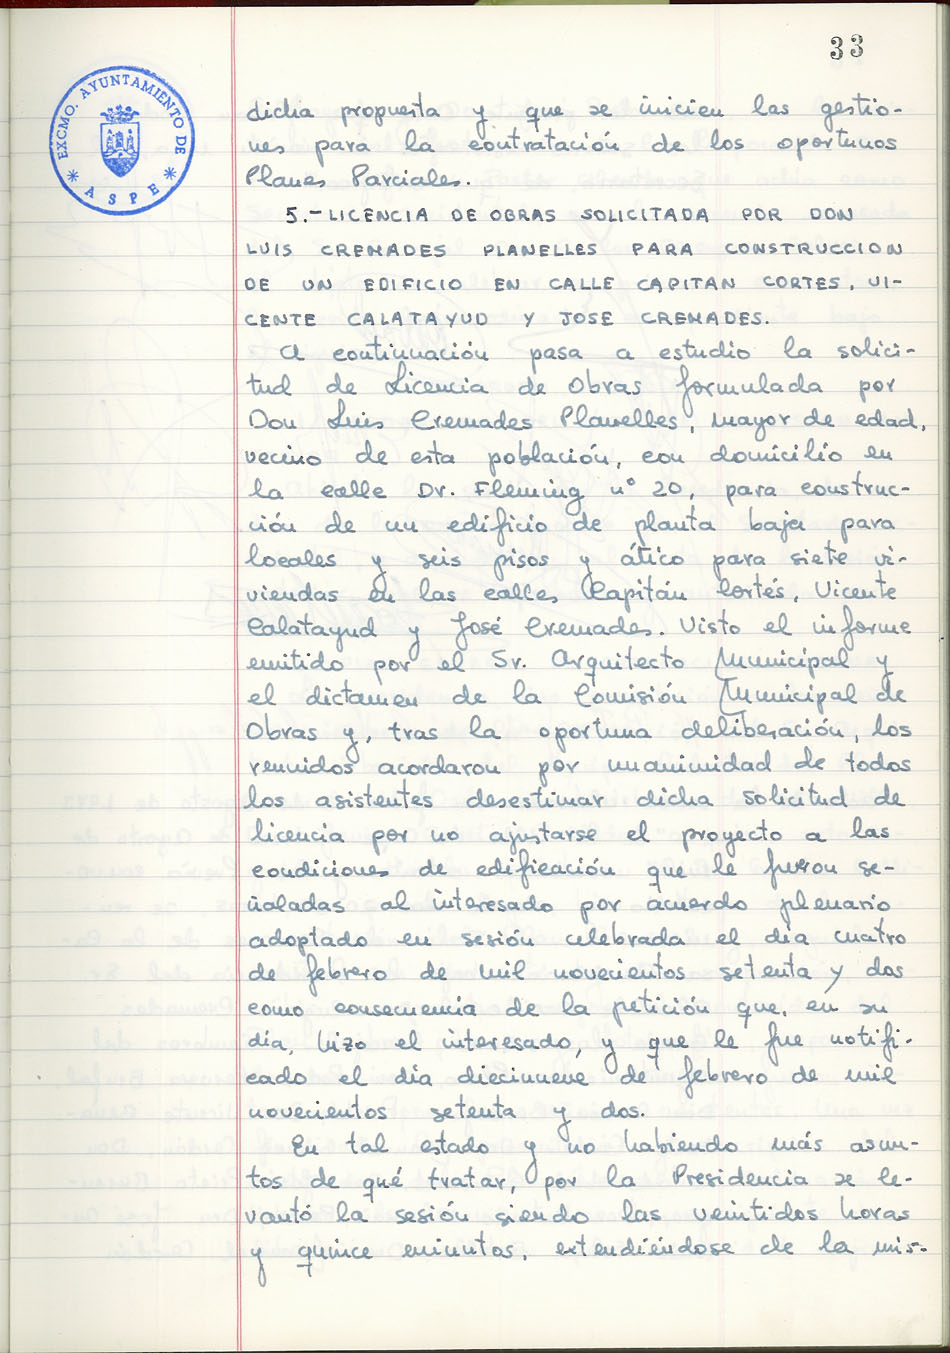 33
EXCMO. AYUNTAMIENTO DE
* ASPE *
dicha propuesta y que se inicien las gestio-
nes para la contratación de los oportunos
Planes Parciales.
5.- LICENCIA DE OBRAS SOLICITADA POR DON
LUIS CREMADES PLANELLES PARA CONSTRUCCION
DE UN EDIFICIO EN CALLE CAPITAN CORTES, VI-
CENTE CALATAYUD Y JOSE CREMADES.
A continuación pasa a estudio la solici-
tud de Licencia de Obras formulada por
Don Luis Cremades Planelles, mayor de edad,
vecino de esta población, con domicilio en
la calle Dr. Fleming nº 20, para construc-
ción de un edificio de planta baja para
locales y seis pisos y ático para siete vi-
viendas en las calles Capitán Cortés, Vicente
Calatayud y José Cremades. Visto el informe
emitido por el Sr. Arquitecto Municipal y
el dictamen de la Comisión Municipal de
Obras y, tras la oportuna deliberación, los
reunidos acordaron por unanimidad de todos
los asistentes desestimar dicha solicitud de
licencia por no ajustarse el proyecto a las
condiciones de edificación que le fueron se-
ñaladas al interesado por acuerdo plenario
adoptado en sesión celebrada el día cuatro
de febrero de mil novecientos setenta y dos
como consecuencia de la petición que, en su
día, hizo el interesado, y que le fue notifi-
cado el día diecinueve de febrero de mil
novecientos setenta y dos.
En tal estado y no habiendo más asun-
tos de qué tratar, por la Presidencia se le-
vantó la sesión siendo las veintidos horas
y quince minutos, extendiéndose de la mis-